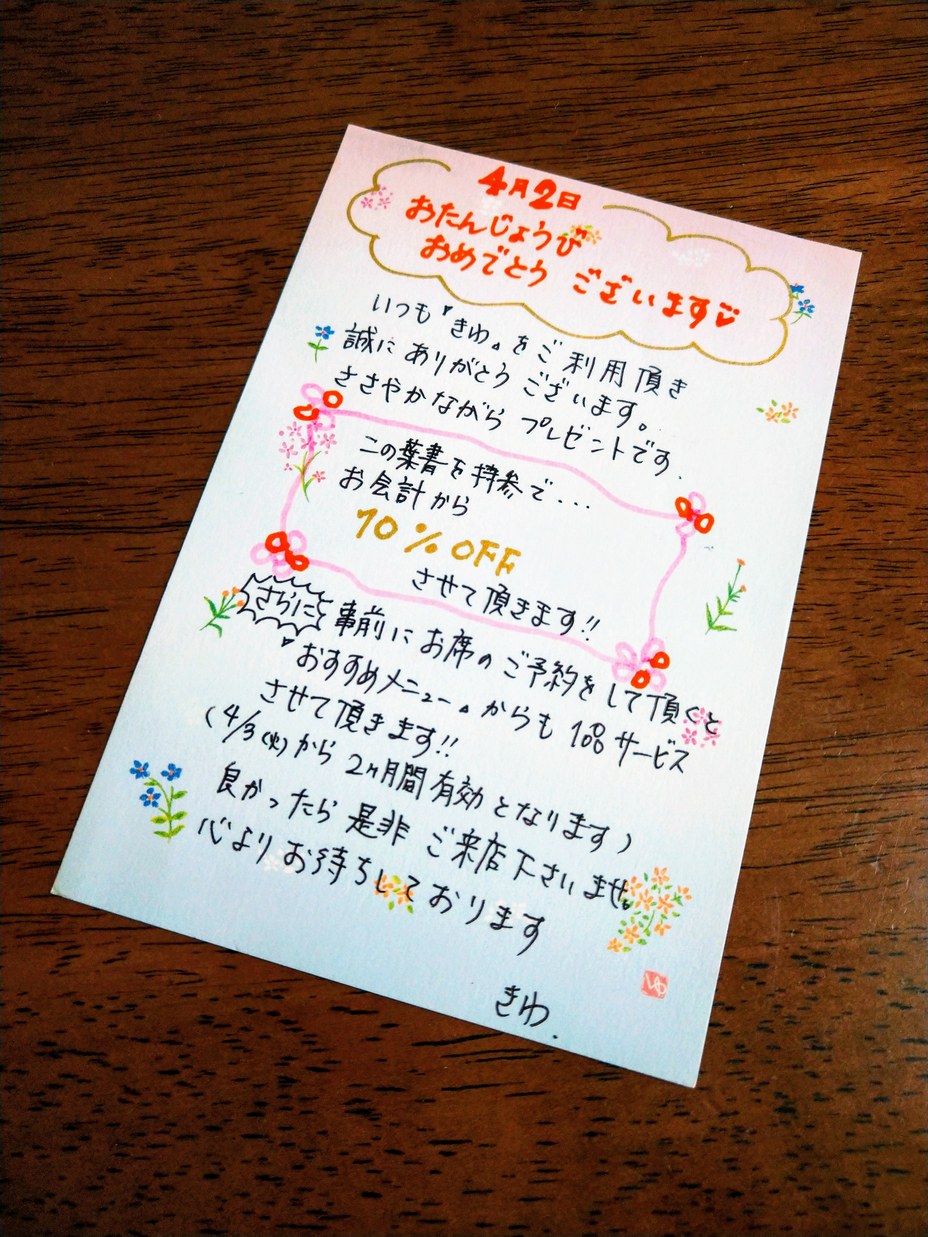 4月2日
おたんじょうび
おめでとう ございます♡
いつも『きわ』をご利用頂き
誠にありがとうございます。
ささやかながら プレゼントです.
この葉書を持参で...
お会計から
10%OFF
させて頂きます!!
さらに 事前にお席のご予約をして頂くと
『おすすめメニュー』からも1品サービス
させて頂きます!!
(4/3(火)から2ヶ月間有効となります)
良かったら是非ご来店下さいませ。
心よりお待ちしております
きわ.